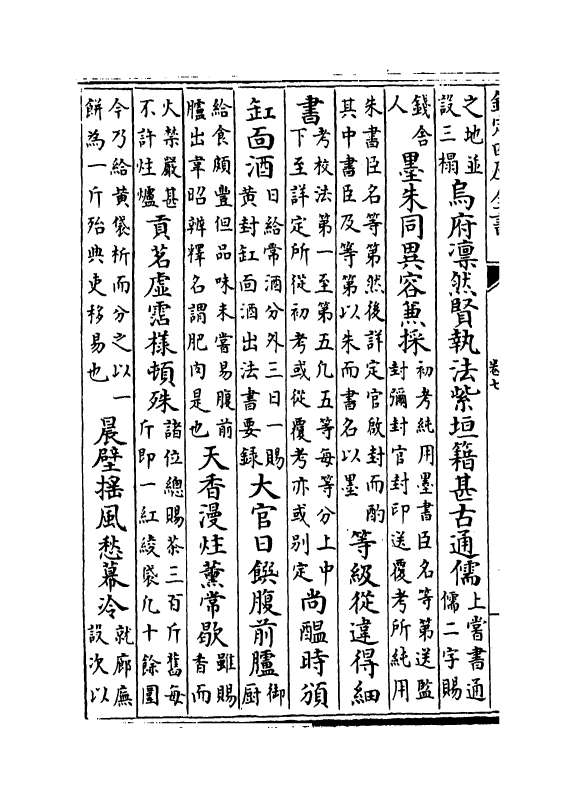 欽定四庫全書
卷七
之地並設三榻烏府凜然賢執法紫垣籍甚古通儒上嘗書通儒二字賜
錢舍人墨朱同異容兼採初考純用墨書臣名等第送監封彌封官封印送覆考所純用
朱書臣名等第然後詳定官啟封而酌其中書臣及等第以朱而書名以墨等級從違得細
書考校法第一至第五凡五等每等分上中下至詳定所從初考或從覆考亦或別定尚醞時頒
缸面酒日給常酒分外三日一賜黃封缸面酒出法書要錄大官日饌腹前臚御廚
給食頗豐但品味未嘗易腹前臚出韋昭辨釋名謂肥肉是也天香漫炷薰常歇雖賜香而
火禁嚴甚不許炷爐貢茗虛霑樣頓殊諸位總賜茶三百斤舊每斤即一紅綾袋凡十餘團
今乃給黃袋析而分之以一餅為一斤殆典吏移易也晨壁搖風愁幕冷就廊廡設次以